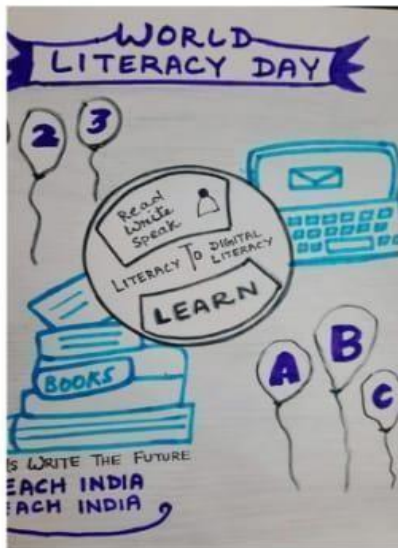 WORLD
LITERACY DAY
2 3
Read
Write
Speak
LITERACY TO DIGITAL
LITERACY
LEARN
BOOKS
A B C
WRITE THE FUTURE
EACH INDIA
EACH INDIA